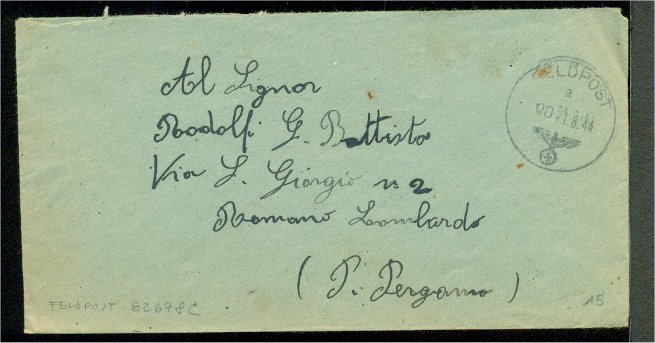 Al Signor
Rodolfi G. Battista
Via S. Giorgio n 2
Romano Lombardo
(P. Bergamo)
FELDPOST
a
31.8.44
FELDPOST 82698C
15